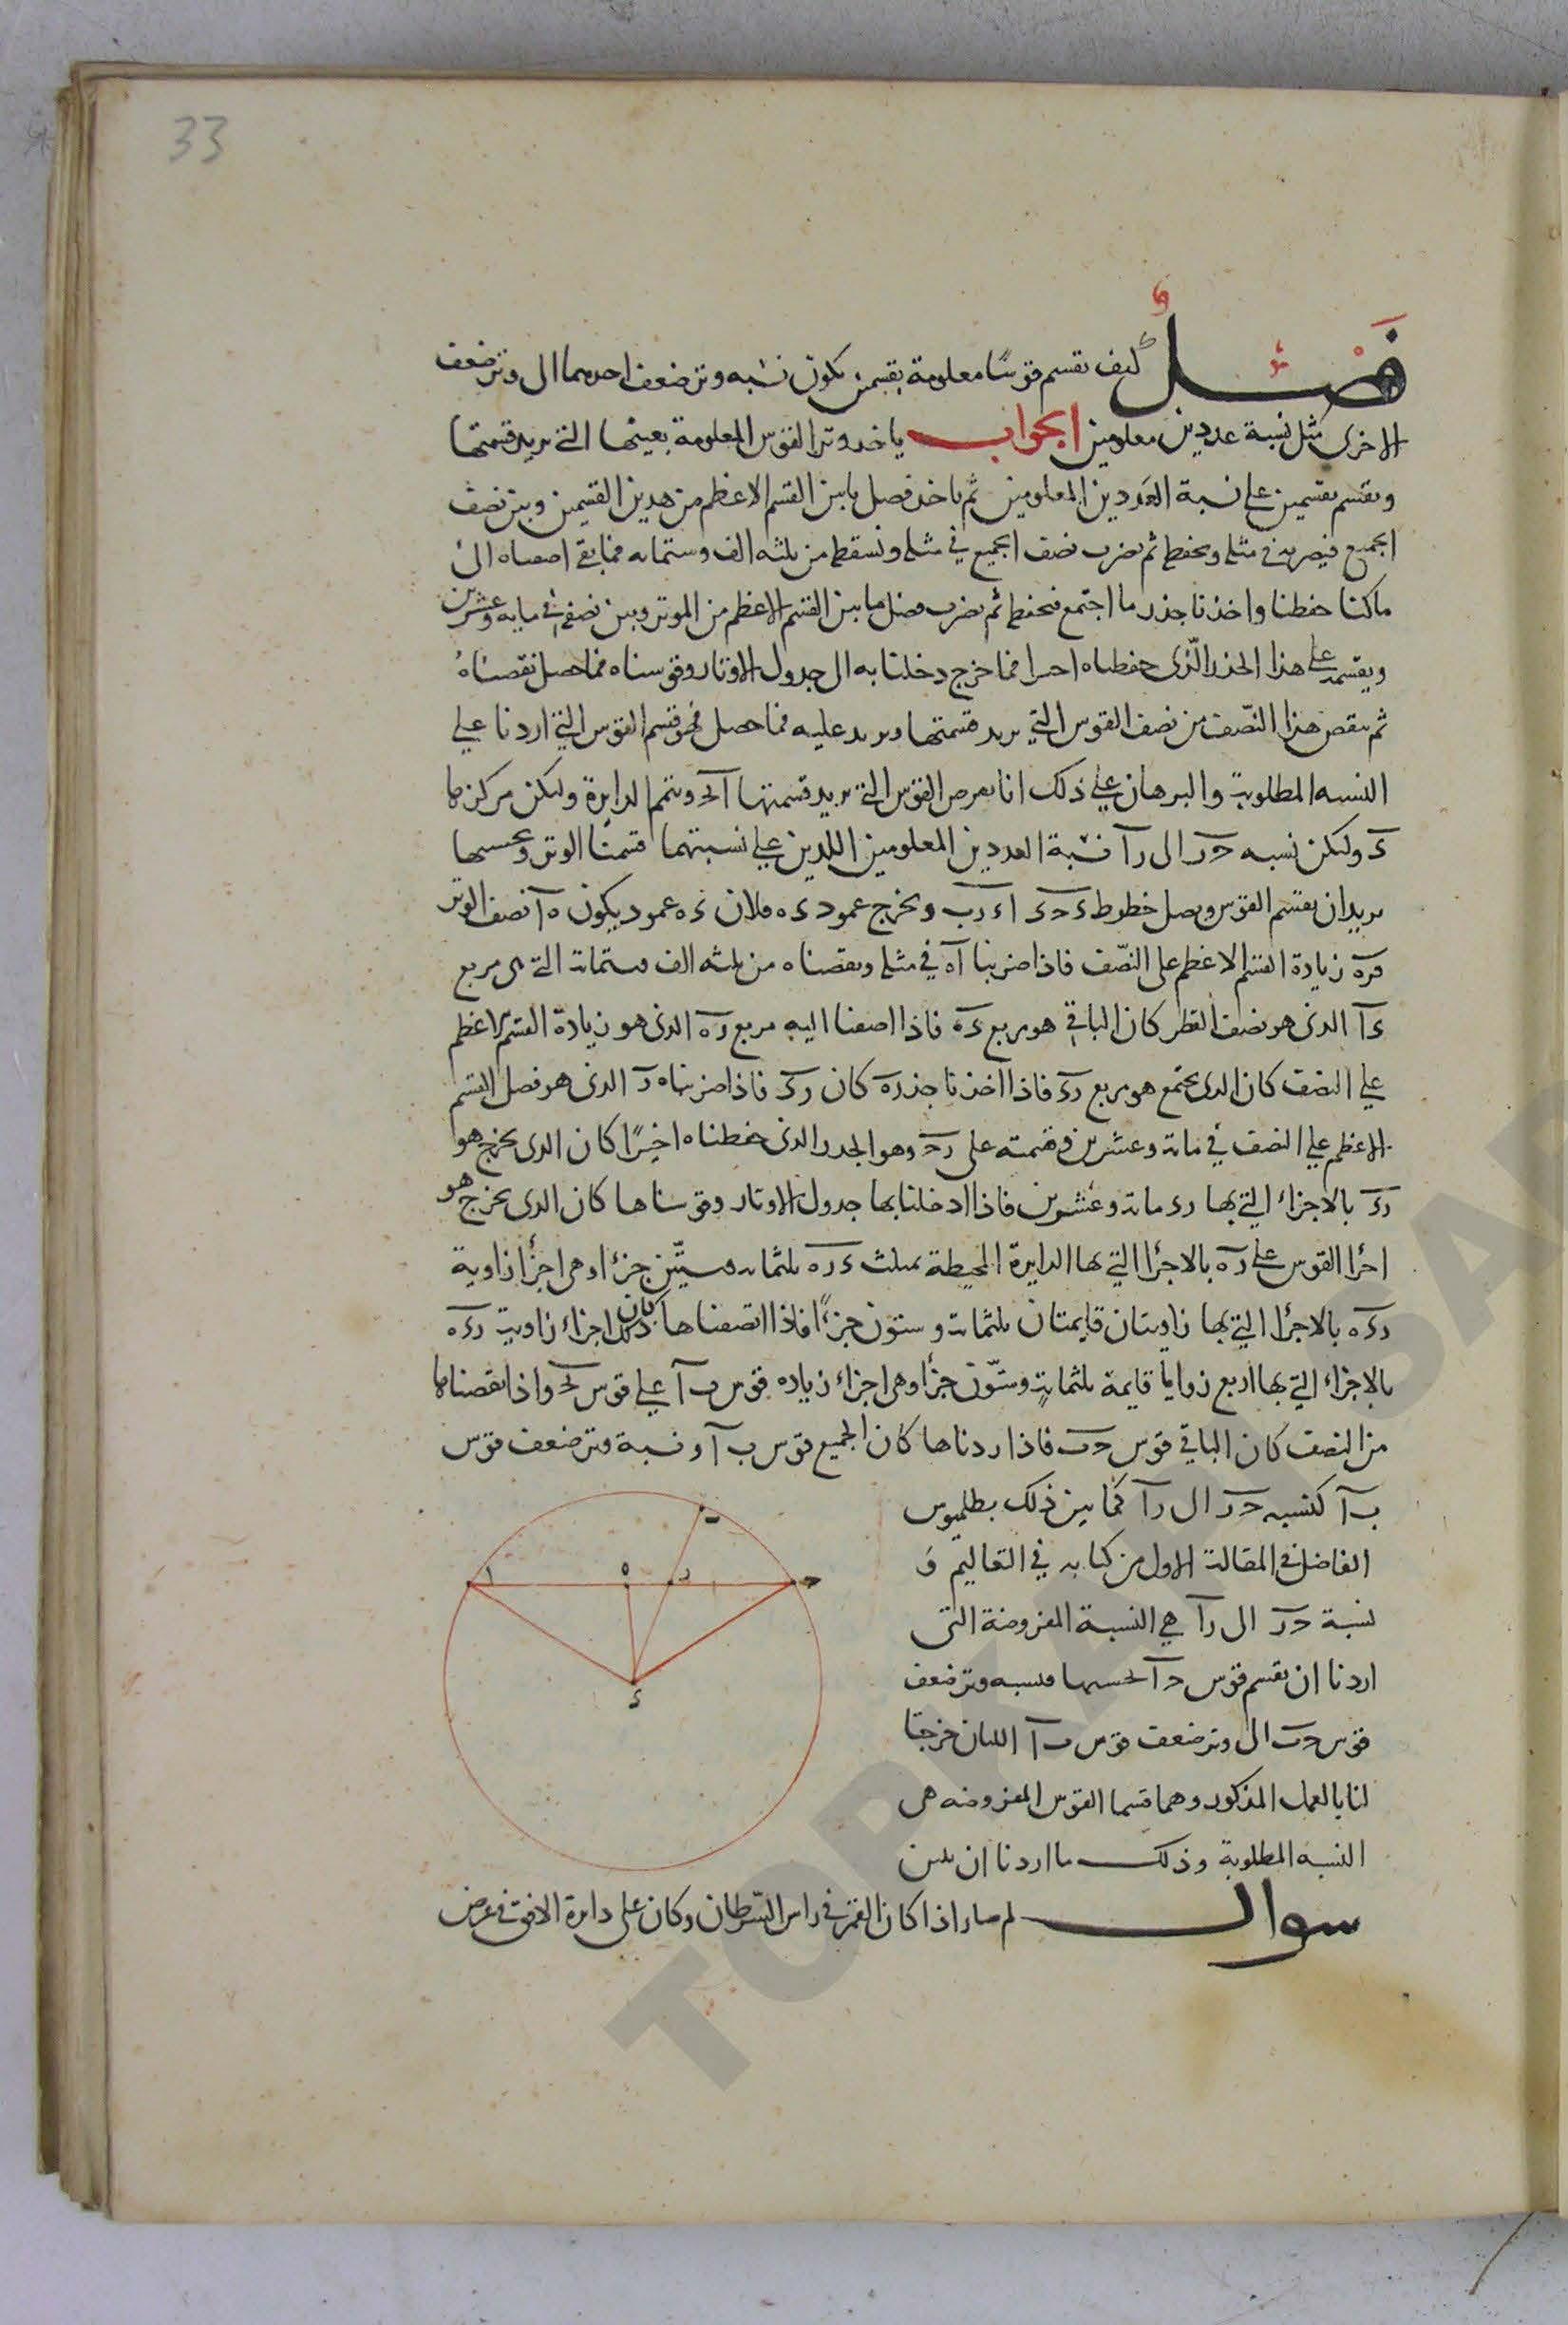 33
فصل كيف نقسم قوسًا معلومة بقسمين يكون نسبه وتر ضعف احدهما الى وتر ضعف
الاخرى مثل نسبة عددين معلومين الجواب ياخذ وتر القوس المعلومة بعينها التي نريد قسمتها
ونقسم بقسمين على نسبة العددين المعلومين ثم ناخذ فضل ما بين القسم الاعظم من هدين القسمين وبين نصف
الجميع فيضربه في مثله ونحفظه ثم نضرب نصف الجميع في مثله ونسقطه من ثلثه الف وستمايه فما بقي اضفناه الى
ما كنا حفظنا واخذنا جذر ما اجتمع فنحفظه ثم نضرب فضل ما بين القسم الاعظم من الموتر وبين نصفه في مايه وعشرين
ويقسمه على هذا الجذر الذى حفظناه اخيرا فما خرج دخلنا به الى جدول الاوتار وقوسناه فما حصل نقصناه
ثم ينقص هذا النصف من نصف القوس التي نريد قسمتها ونزيد عليه فما حصل فهو قسم القوس التي اردنا على
النسبه المطلوبة والبرهان على ذلك انا نفرض القوس التي نريد قسمتها آحـ ونتمم الدايرة وليكن مركزها
ءَ وليكن نسبه حر الى رآ نسبة العددين المعلومين اللدين على نسبتهما قسمنا الوتر وبحسبها
نريد ان نقسم القوس ونصل خطوط ءحـ ءَ اءَ رب ونخرج عمود ءه فلان ءه عمود يكون ه آ نصف الوتر
فره زيادة القسم الاعظم على النصف فاذا ضربنا آه في مثله ونقصناه من ثلثه الف وستمائة التي هى مربع
ءآ الذى هو نصف القطر كان الباقي هو مربع ءه فاذا اضفنا اليه مربع ره الذى هو زيادة القسم الاعظم
على النصف كان الذى يجتمع هو مربع رء فاذا اخذنا جذره كان رء فاذا ضربناه ر الذى هو فضل القسم
الاعظم على النصف في مائة وعشرين وقسمته على رء وهو الجذر الذى حفظناه اخيرًا كان الذى يخرج هو
رء بالاجزاء التي بها رء مائة وعشرين فاذا ادخلنا بها جدول الاوتار وقوسناها كان الذى يخرج هو
اجزا القوس على ره بالاجزا التي بها الدايرة المحيطة بمثلث ءره ثلثمائة وستين جزءا وهى اجزا زاوية
رءه بالاجزا التي بها زاويتان قايمتان ثلثمائة وستون جزءًا فاذا انصفناها كان ذلك اجزاء زاوية رءه
بالاجزاء التي بها اربع زوايا قايمة ثلثماية وستون جزأ وهى اجزاء زياده قوس ب آ على قوس بحـ واذا نقصناها
من النصف كان الباقي قوس حب فاذا زدناها كان الجميع قوس ب آ ونسبة وتر ضعف قوس
ب آ كنسبه حر الى رآ كما بين ذلك بطلميوس
الفاضل في المقالة الاولى من كتابه في التعاليم وَ
نسبة حر الى رآ هي النسبة المفروضة التى
اردنا ان نقسم قوس حآ بحسبها فنسبه وتر ضعف
قوس حب الى وتر ضعف قوس ب آ اللتان خرجتا
لنا بالعمل المذكور وهما قسما القوس المفروضه هى
النسبه المطلوبة وذلك ما اردنا ان نبين
سوال لم صار اذا كان القمر في راس السرطان وكان على دايرة الافق في عرض